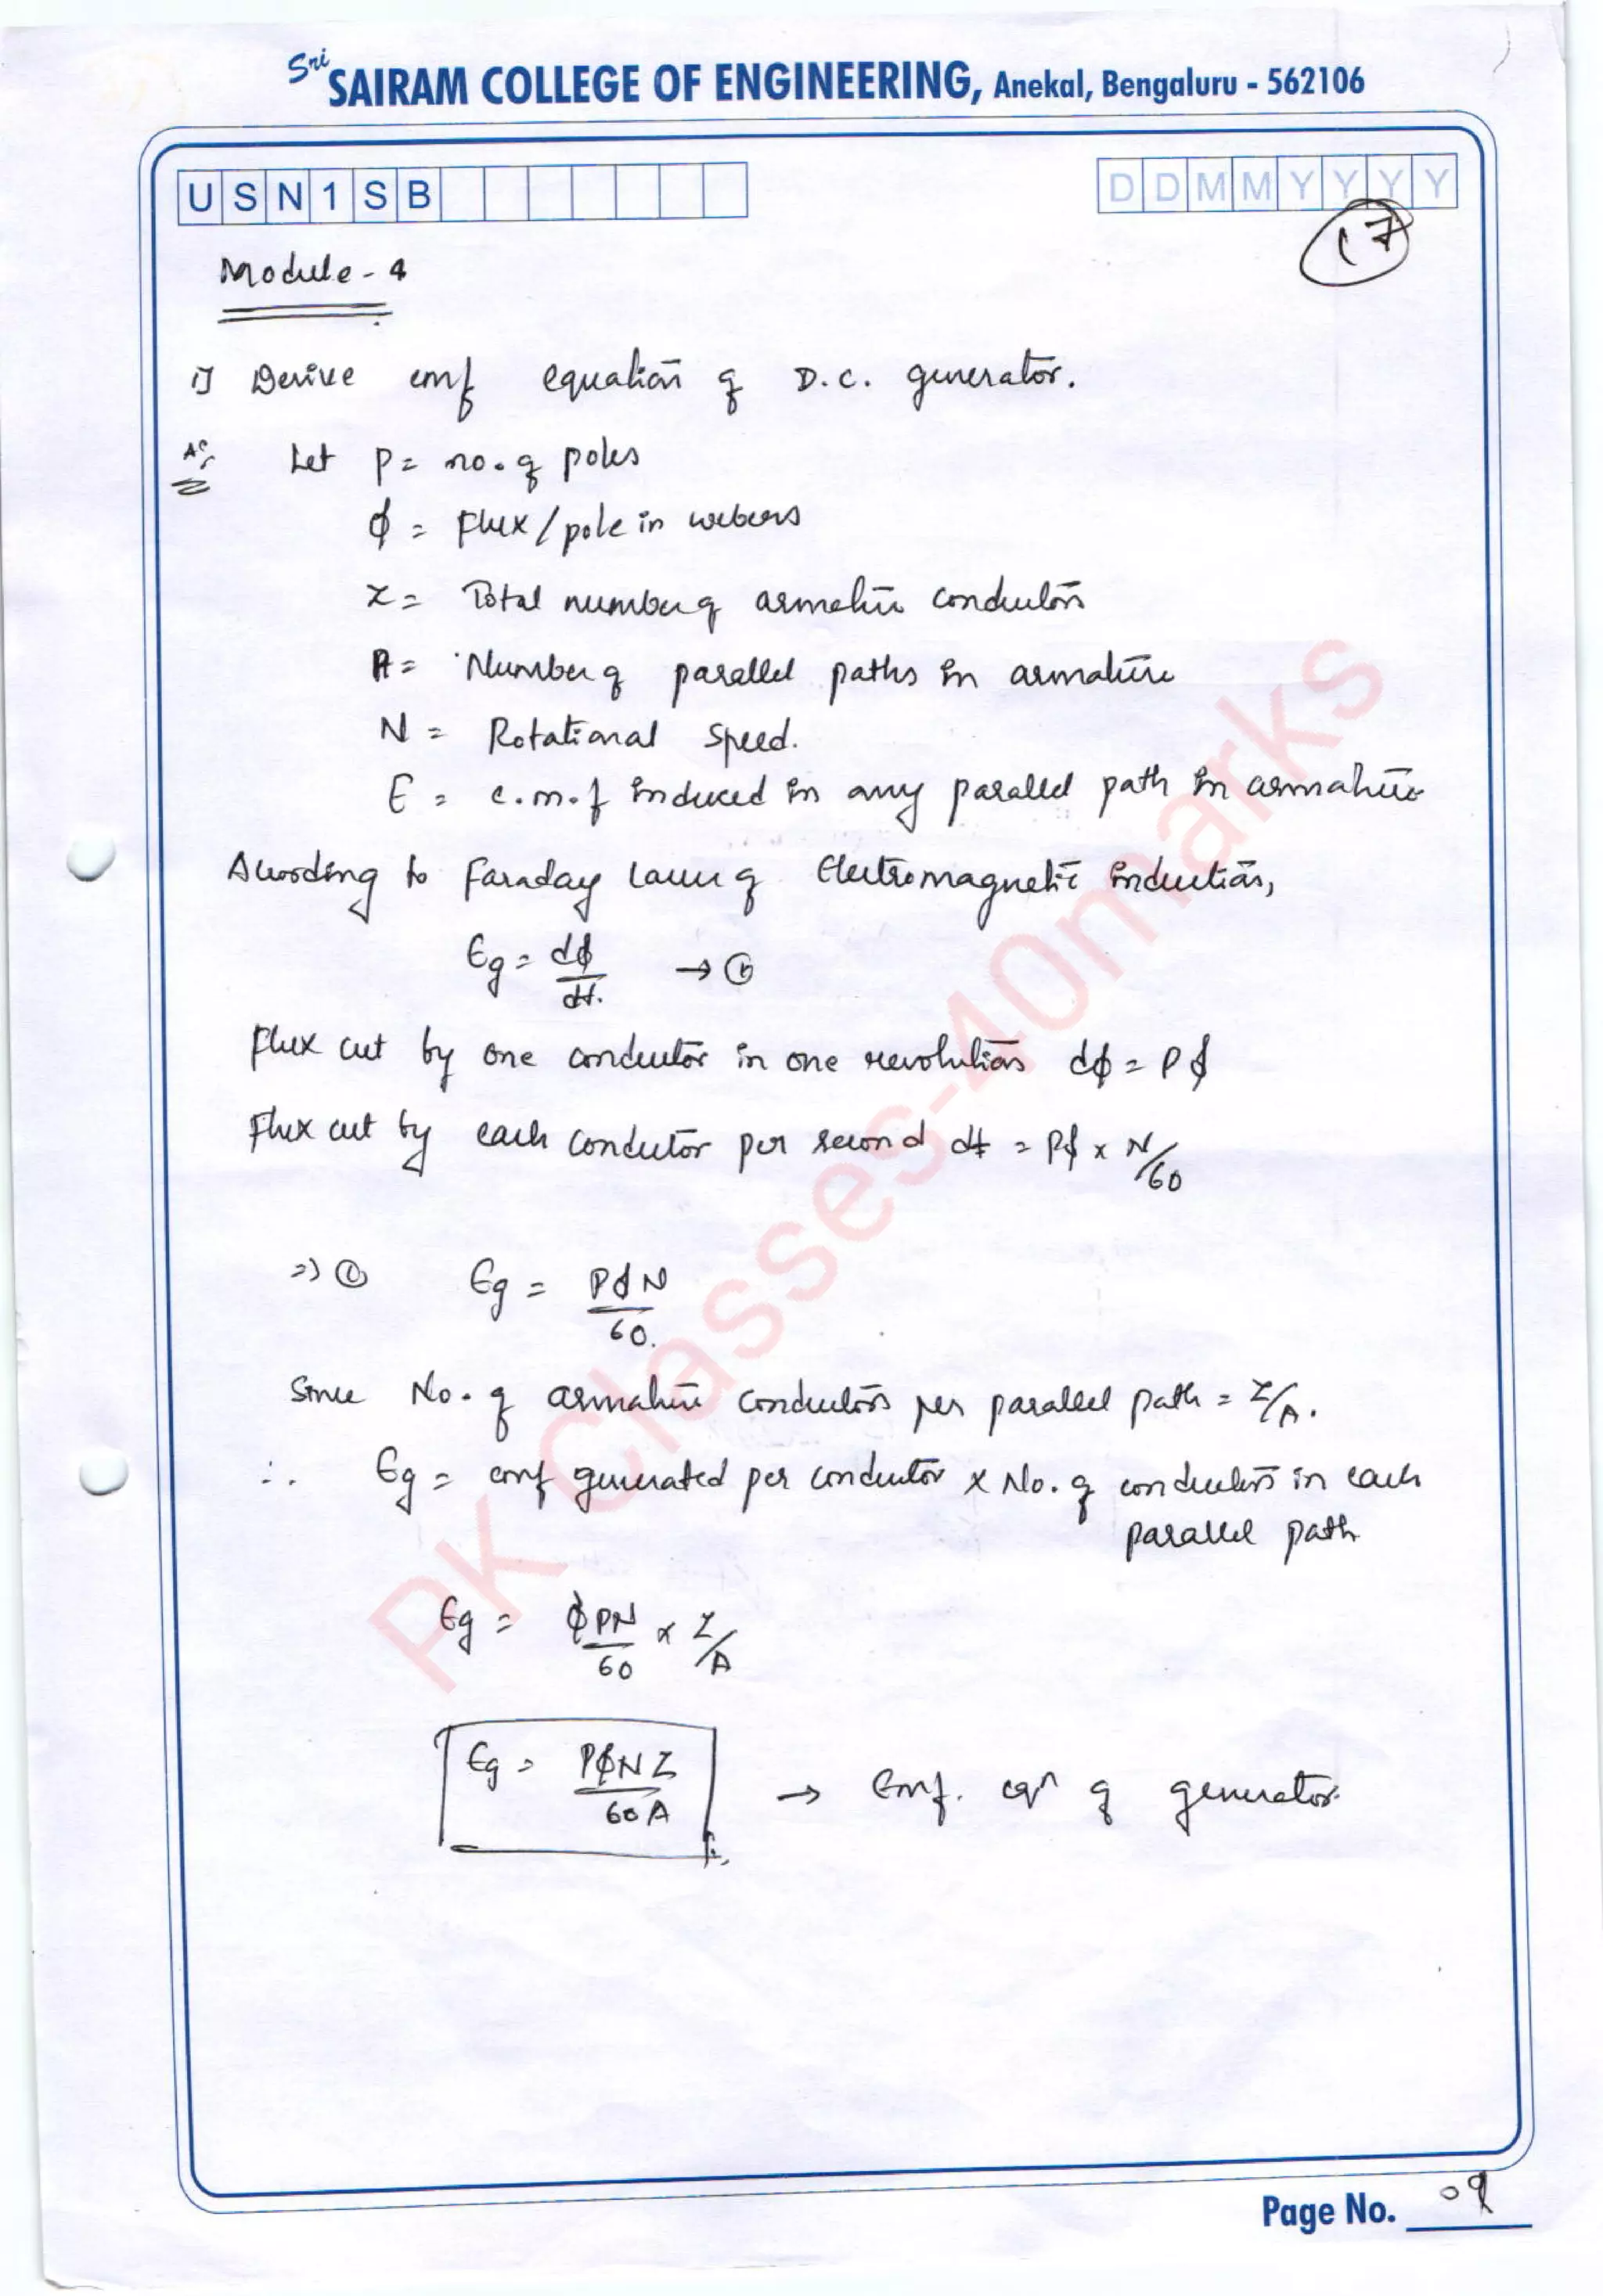 Sri SAIRAM COLLEGE OF ENGINEERING, Anekal, Bengaluru - 562106
USN1SB
DDMMYYYY
17
Module - 4
1] Derive emf equation of D.C. generator.
Let P = no. of poles
ϕ = Flux / pole in webers
Z = Total number of armature conductors
A = Number of parallel paths in armature
N = Rotational Speed.
E = e.m.f induced in any parallel path in armature
According to Faraday Law of Electromagnetic induction,
Eg = dϕ/dt. → ①
Flux cut by one conductor in one revolution dϕ = Pϕ
Flux cut by each conductor per second dt = Pϕ x N/60
=> ① Eg = PϕN/60.
Since No. of armature conductors per parallel path = Z/A.
∴ Eg = emf generated per conductor x No. of conductors in each
parallel path
Eg = ϕPN/60 x Z/A
Eg = PϕNZ/60A → Emf. eqn of generator.
PK Classes-40marks
Page No. 09